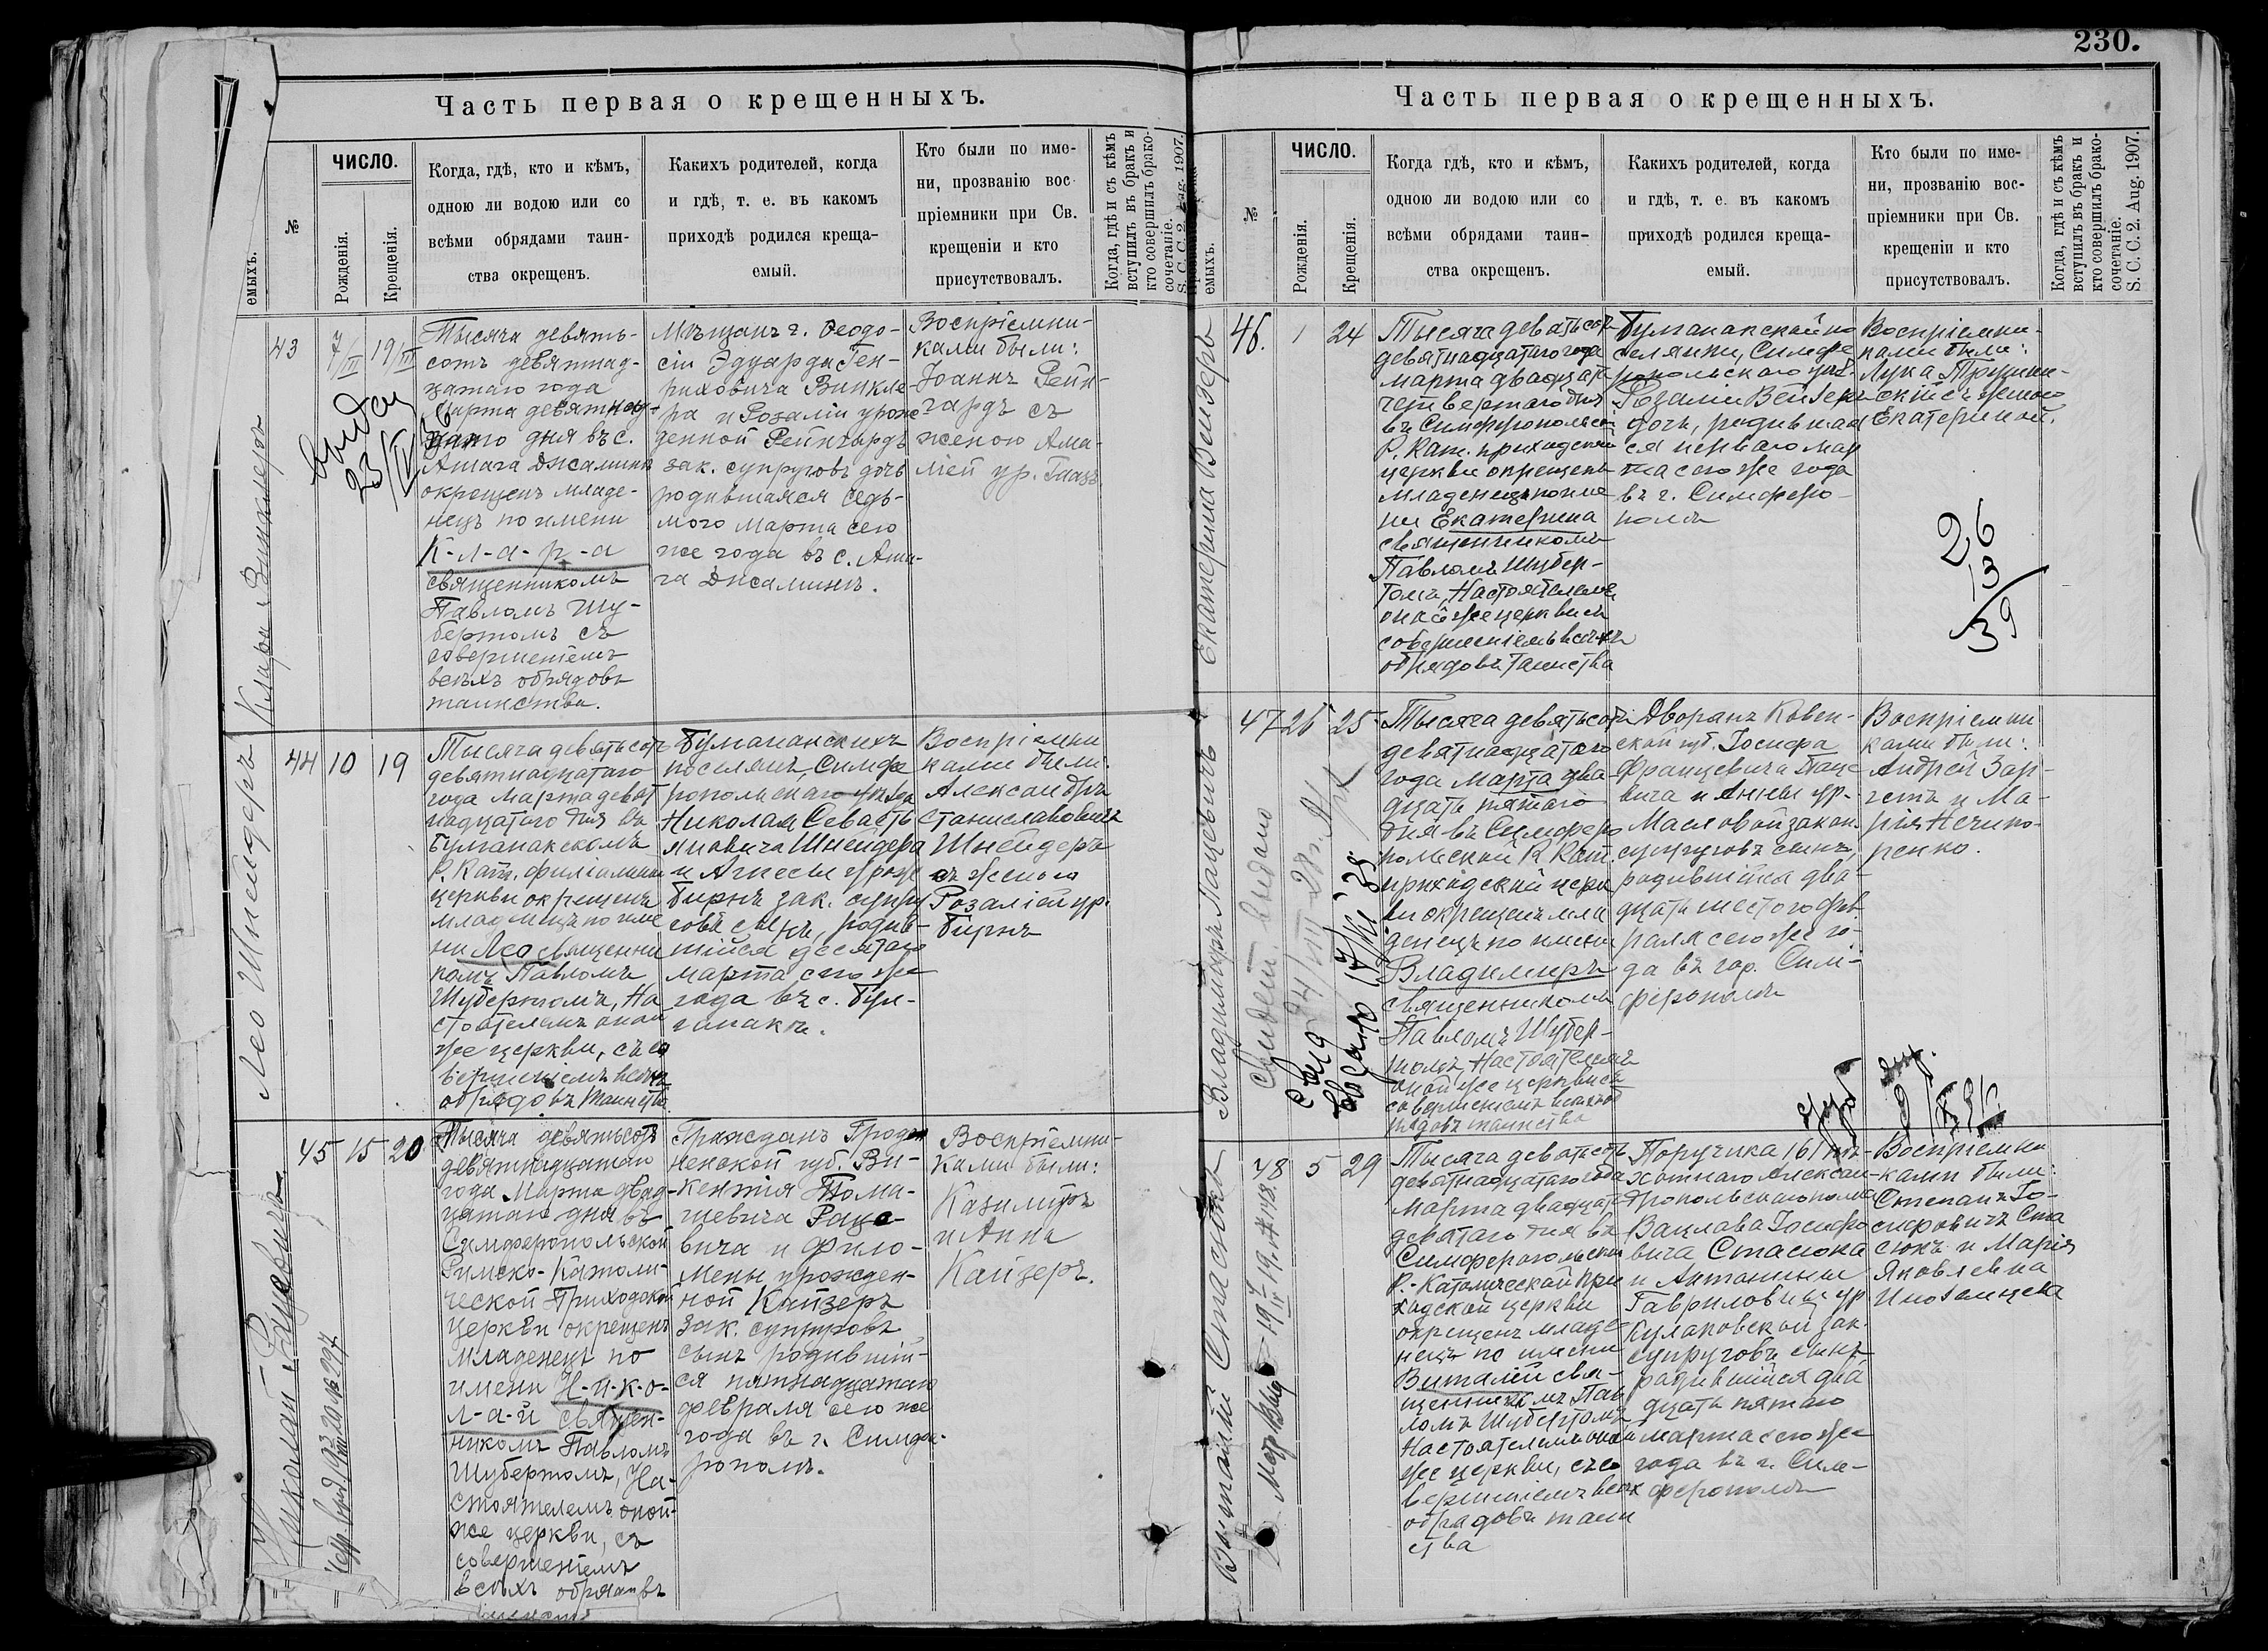 230.
Часть первая о крещенныхъ.
емыхъ.
№
ЧИСЛО.
Рожденія.
Крещенія.
Когда, гдѣ, кто и кѣмъ,
одною ли водою или со
всѣми обрядами таин-
ства окрещенъ.
Какихъ родителей, когда
и гдѣ, т. е. въ какомъ
приходѣ родился креща-
емый.
Кто были по име-
ни, прозванію вос-
пріемники при Св.
крещеніи и кто
присутствовалъ.
Когда, гдѣ и съ кѣмъ
вступилъ въ бракъ и
кто совершилъ брако-
сочетаніе.
S. C. C. 2. Aug. 1907.
Клара Винклеръ
43
7/III
19/III
Тысяча девять-
сотъ девятнад-
цатаго года
Марта девятнад-
цатаго дня въ с.
Атага Джаминъ
окрещенъ младе-
нецъ по имени
К-л-а-р-а
священникомъ
Павломъ Шу-
бертомъ съ
совершеніемъ
всѣхъ обрядовъ
таинства.
Мѣщанъ г. Ѳеодо-
сіи Эдуарда Ген-
риховича Винкле-
ра и Розаліи урож-
денной Рейнгардъ
зак. супруговъ дочь
родившаяся седь-
мого Марта сего
же года въ с. Ата-
га Джаминъ.
Воспріемни-
ками были:
Іоаннъ Рейн-
гардъ съ
женою Ама-
ліей ур.
Лео Шнейдеръ
44
10
19
Тысяча девятьсотъ
девятнадцатаго
года Марта девят
надцатаго дня въ
Булганакскомъ
Р. Кат. филіальной
церкви окрещенъ
младенецъ по име
ни Лео священни
комъ Павломъ
Шубертомъ, На
стоятелемъ оной
же церкви, съ со
вершеніемъ всѣхъ
обрядовъ таинства
Булганакскихъ
поселянъ, Симфе
ропольскаго уѣзда
Николая Севасть
яновича Шнейдера
и Агнесы урож
Бирнъ зак. супру
говъ сынъ, родив-
шійся десятаго
марта сего же
года въ с. Бул-
ганакъ.
Воспріемни
ками были:
Александръ
Станиславовичъ
Шнейдеръ
съ женою
Розаліей ур.
Бирнъ
Николай Рацевичъ
45
15
20
Тысяча девятьсотъ
девятнадцатаго
года Марта двад-
цатаго дня въ
Симферопольской
Римско-Католи-
ческой Приходской
церкви окрещенъ
младенецъ по
имени Н-и-к-о-
л-а-й священ-
никомъ Павломъ
Шубертомъ, На-
стоятелемъ оной-
же церкви, съ
совершеніемъ
всѣхъ обрядовъ
Гражданъ Грод-
ненской губ. Ви-
кентія Тома-
шевича Раце-
вича и Фило-
мены урожден-
ной Кайзеръ
зак. супруговъ
сынъ родивший-
ся пятнадцатаго
февраля сего же
года въ г. Симфе-
рополъ.
Воспріемни-
ками были:
Казимиръ
и Анна
Кайзеръ.
Часть первая о крещенныхъ.
емыхъ.
№
ЧИСЛО.
Рожденія.
Крещенія.
Когда, гдѣ, кто и кѣмъ,
одною ли водою или со
всѣми обрядами таин-
ства окрещенъ.
Какихъ родителей, когда
и гдѣ, т. е. въ какомъ
приходѣ родился креща-
емый.
Кто были по име-
ни, прозванію вос-
пріемники при Св.
крещеніи и кто
присутствовалъ.
Когда, гдѣ и съ кѣмъ
вступилъ въ бракъ и
кто совершилъ брако-
сочетаніе.
S. C. C. 2. Aug. 1907.
46.
1
24
Тысяча девятьсотъ
девятнадцатаго года
марта двадцать
четвертаго дня
въ Симферопольской
Р. Кат. приходской
церкви окрещенъ
младенецъ по име
ни Екатерина
священникомъ
Павломъ Шубер-
томъ, Настоятелемъ
оной же церкви съ
совершеніемъ всѣхъ
обрядовъ таинства
Булганакской по
селянки, Симфе
ропольскаго уѣз.
Розаліи
дочь, родившая
ся перваго мар
та сего же года
въ г. Симферо-
полѣ
Воспріемни-
ками были:
Лука
съ женою
Екатериной.
26
13
39
Владиміръ Пацевичъ
47
26
25
Тысяча девятьсотъ
девятнадцатаго
года Марта два
дцать пятаго
дня въ Симферо
польской Р. Кат.
приходской церк
ви окрещенъ мла
денецъ по имени
Владиміръ
священникомъ
Павломъ Шубер-
томъ, Настоятелемъ
оной же церкви съ
совершеніемъ всѣхъ об
рядовъ таинства
Дворянъ Ковен-
ской губ. Іосифа
Францевича Паце
вича и Анны ур.
Масловой закон.
супруговъ сынъ,
родившійся два-
дцать шестого фев
раля сего же го-
да въ гор. Сим-
ферополѣ
Воспріемни
ками были:
Андрей Зар-
и Ма-
рія Нечипо-
ренко.
Виталій Стасюкъ
48
5
29
Тысяча девятьсотъ
девятнадцатаго года
Марта двадцать
девятаго дня въ
Симферопольской
Р.-Католической при
ходской церкви
окрещенъ младе
нецъ по имени
Виталій свя-
щенникомъ Пав
ломъ Шубертомъ
Настоятелемъ оной
же церкви, съ со
вершеніемъ всѣхъ
обрядовъ таин
ства
Поручика 161 пѣ-
хотнаго Алексан-
дропольскаго полка
Вацлава Іосифо
вича Стасюка
и Антонины
Гавриловны ур
Кулаковской зак.
супруговъ сынъ,
родившійся два
дцать пятаго
марта сего же
года въ г. Сим-
ферополѣ
Воспріемни
ками были:
Степанъ Іо-
сифовичъ Ста
сюкъ и Марія
Яковлевна
Иноземцева